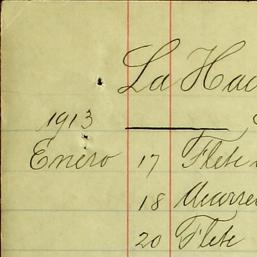 La Hac
1913
Enero 17 Flete
18 Acarre
20 Flete